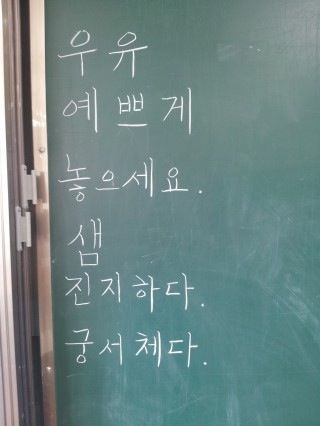 우유
예쁘게
놓으세요.
샘
진지하다.
궁서체다.